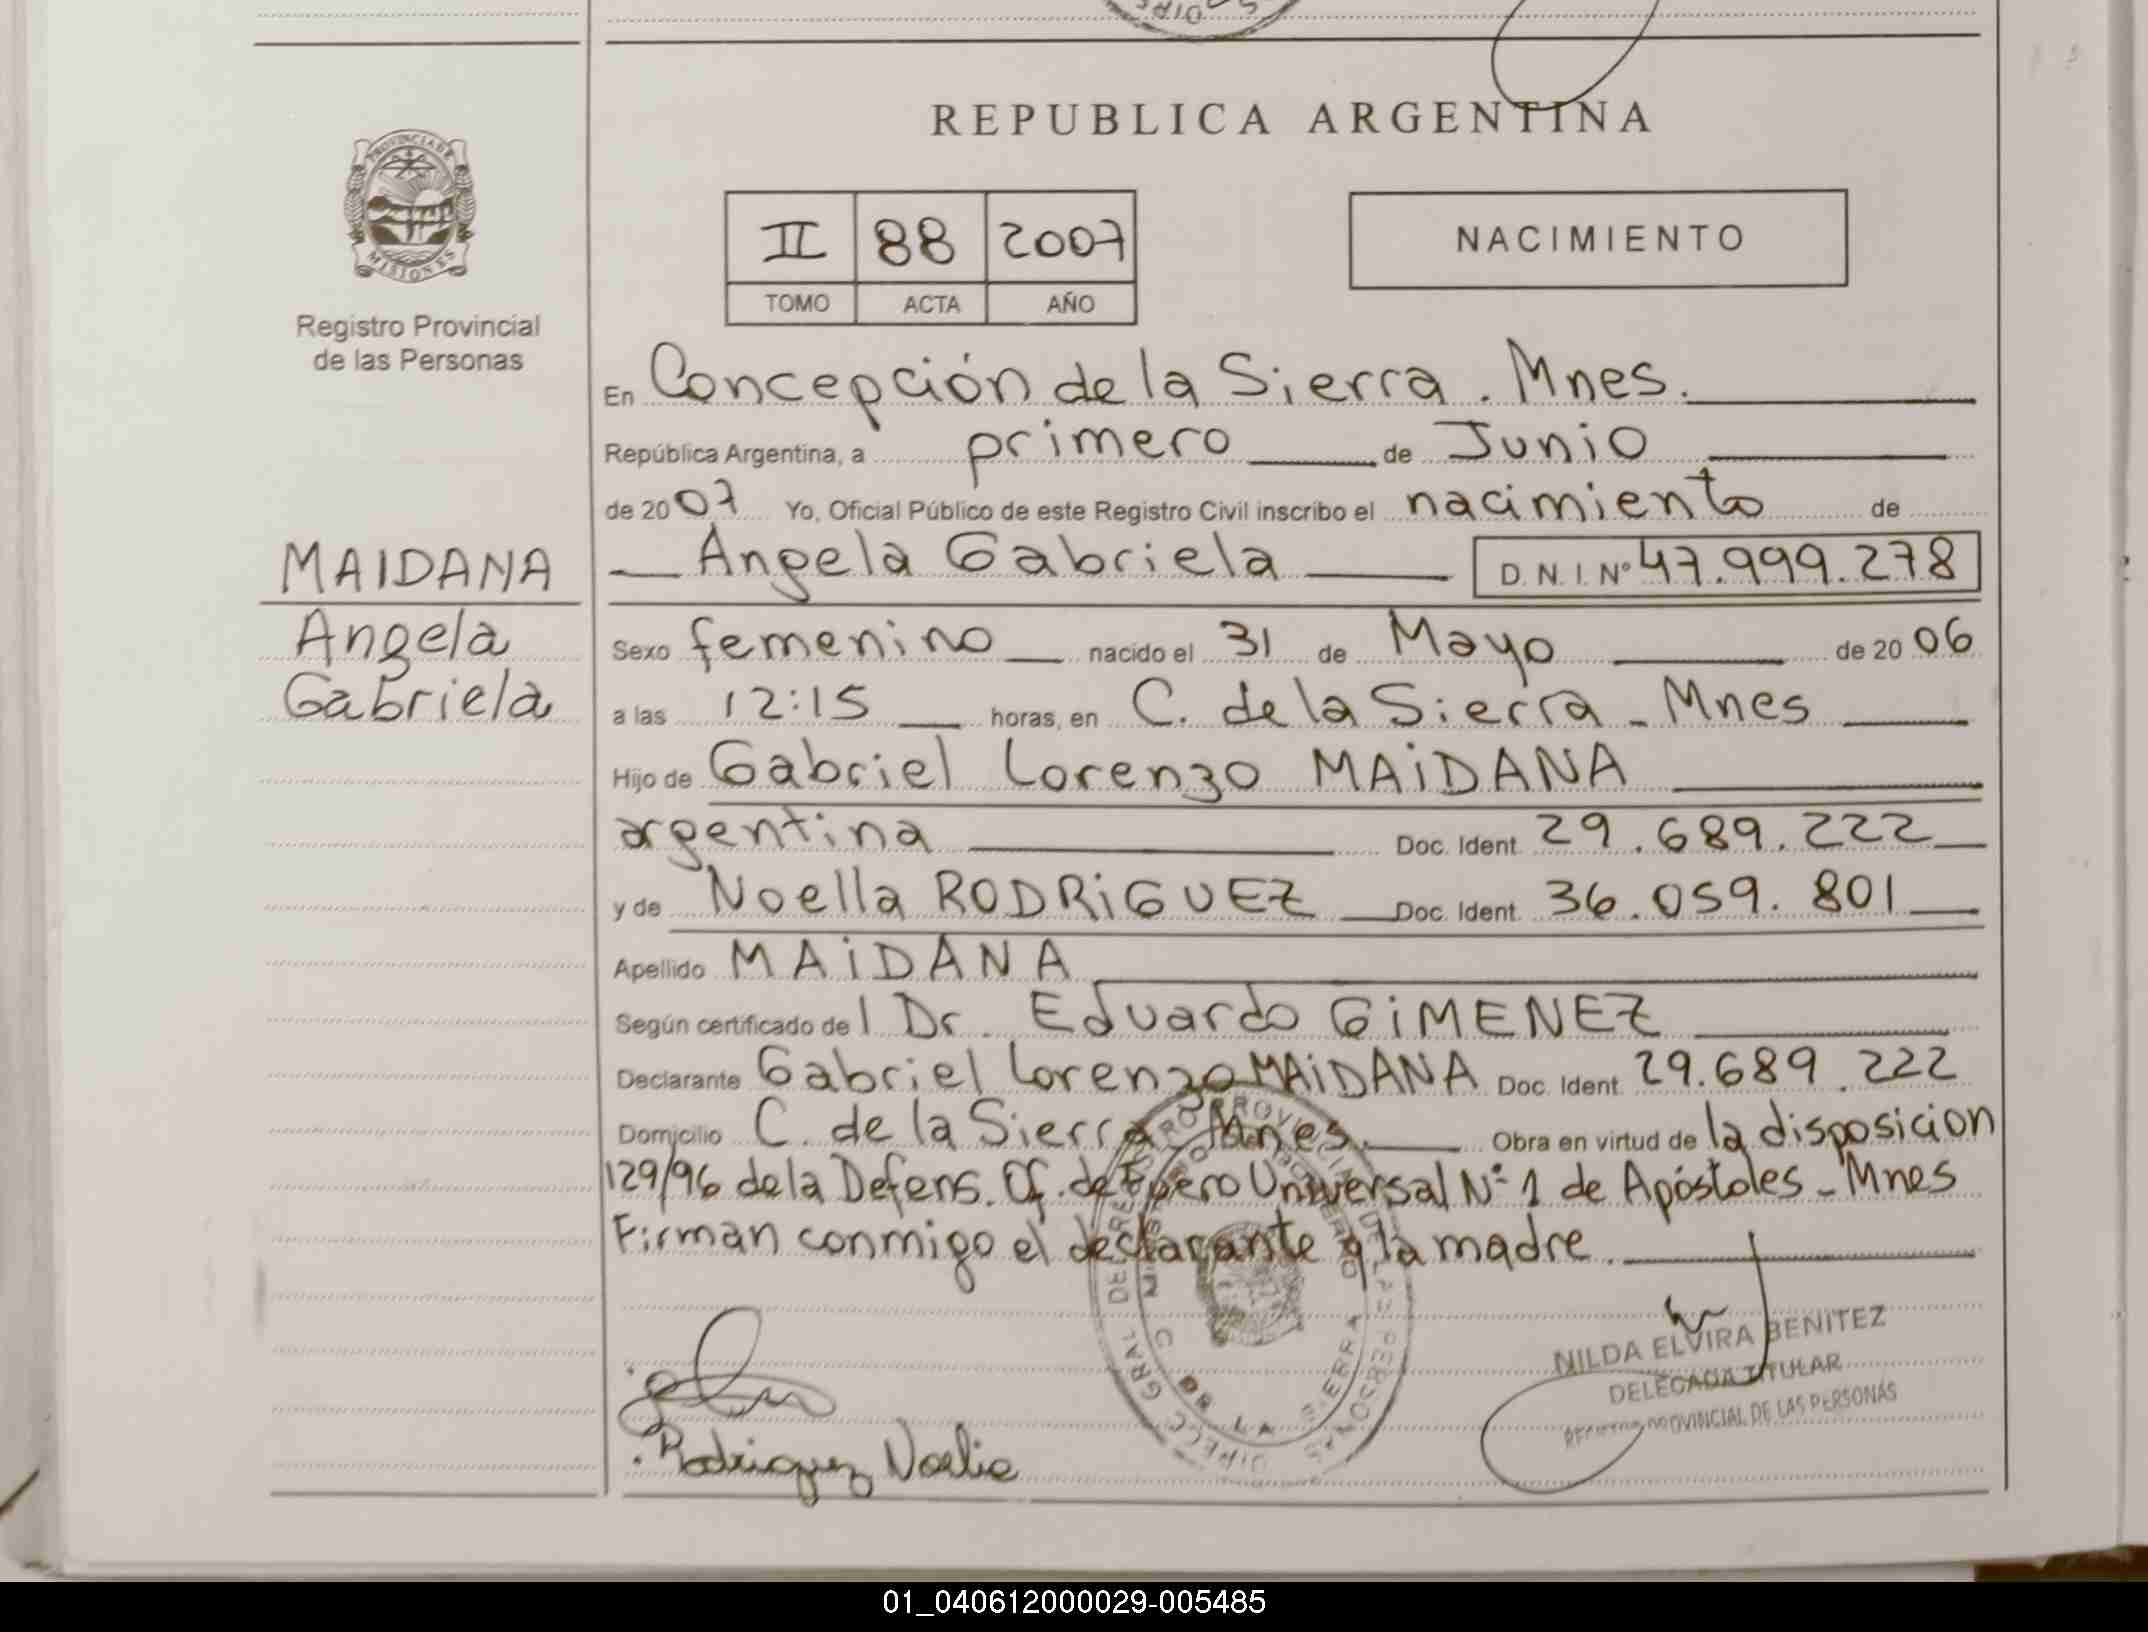 REPUBLICA ARGENTINA
PROVINCIA DE
MISIONES
Registro Provincial
de las Personas
II 88 2007
TOMO ACTA AÑO
NACIMIENTO
En Concepción de la Sierra. Mnes.
República Argentina, a primero de Junio
de 2007 Yo, Oficial Público de este Registro Civil inscribo el nacimiento de
Angela Gabriela D.N.I. Nº 47.999.278
MAIDANA
Angela
Gabriela
Sexo femenino nacido el 31 de Mayo de 2006
a las 12:15 horas, en C. de la Sierra - Mnes
Hijo de Gabriel Lorenzo MAiDANA
argentina Doc. Ident. 29.689.222
y de Noella RODRiGUEZ Doc. Ident. 36.059.801
Apellido MAiDANA
Según certificado del Dr. Eduardo GiMENEZ
Declarante Gabriel Lorenzo MAiDANA Doc. Ident. 29.689.222
Domicilio C. de la Sierra Mnes. Obra en virtud de la disposicion
129/96 de la Defens. Of. de Fuero Universal Nº 1 de Apóstoles - Mnes
Firman conmigo el declarante y la madre.
Rodriguez Noelia
NILDA ELVIRA BENITEZ
DELEGADA TITULAR
PROVINCIAL DE LAS PERSONAS
01_040612000029-005485